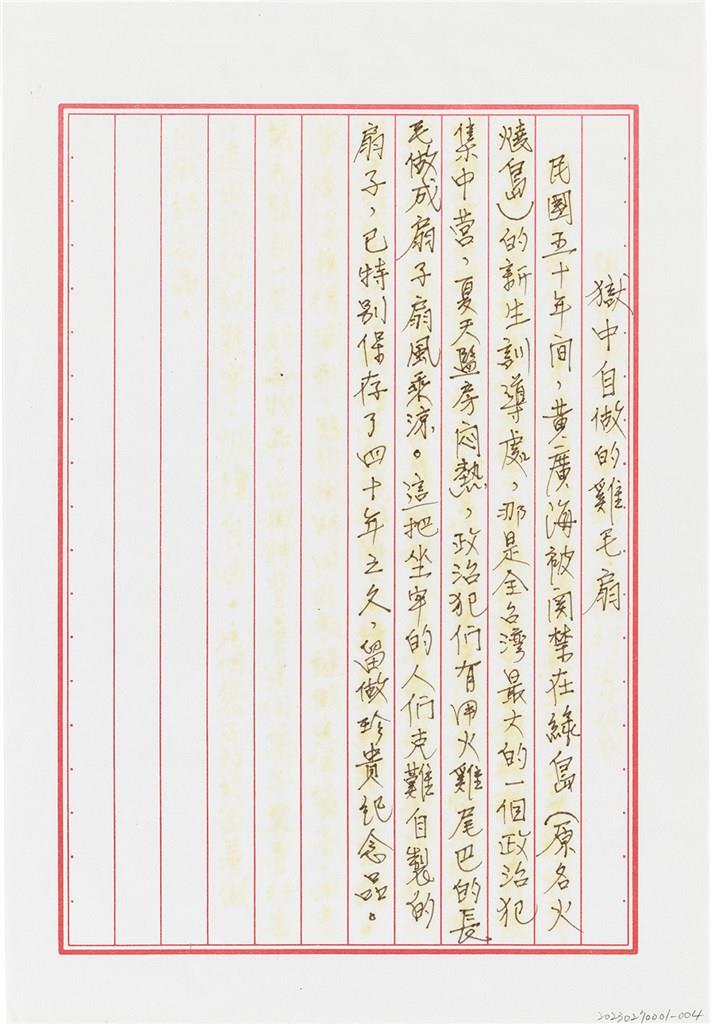 獄中自做的雞毛扇
民國五十年間，黃廣海被関禁在綠島（原名火
燒島）的新生訓導處，那是全台灣最大的一個政治犯
集中营，夏天監房闷熱，政治犯们有用火雞尾巴的長
毛做成扇子扇風乘涼。這把坐牢的人们克難自製的
扇子，已特别保存了四十年之久，留做珍貴纪念品。
20230270001-004